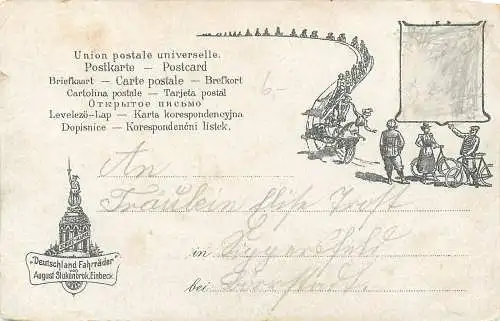 Union postale universelle.
Postkarte — Postcard
Briefkaart — Carte postale — Brefkort
Cartolina postale — Tarjeta postal
Открытое письмо
Levelező-Lap — Karta korespondencyjna
Dopisnice — Korespondenčni listek.
6.-
An
Fräulein Elise Trost
in
bei
"Deutschland Fahrräder"
von
August Stukenbrok, Einbeck.